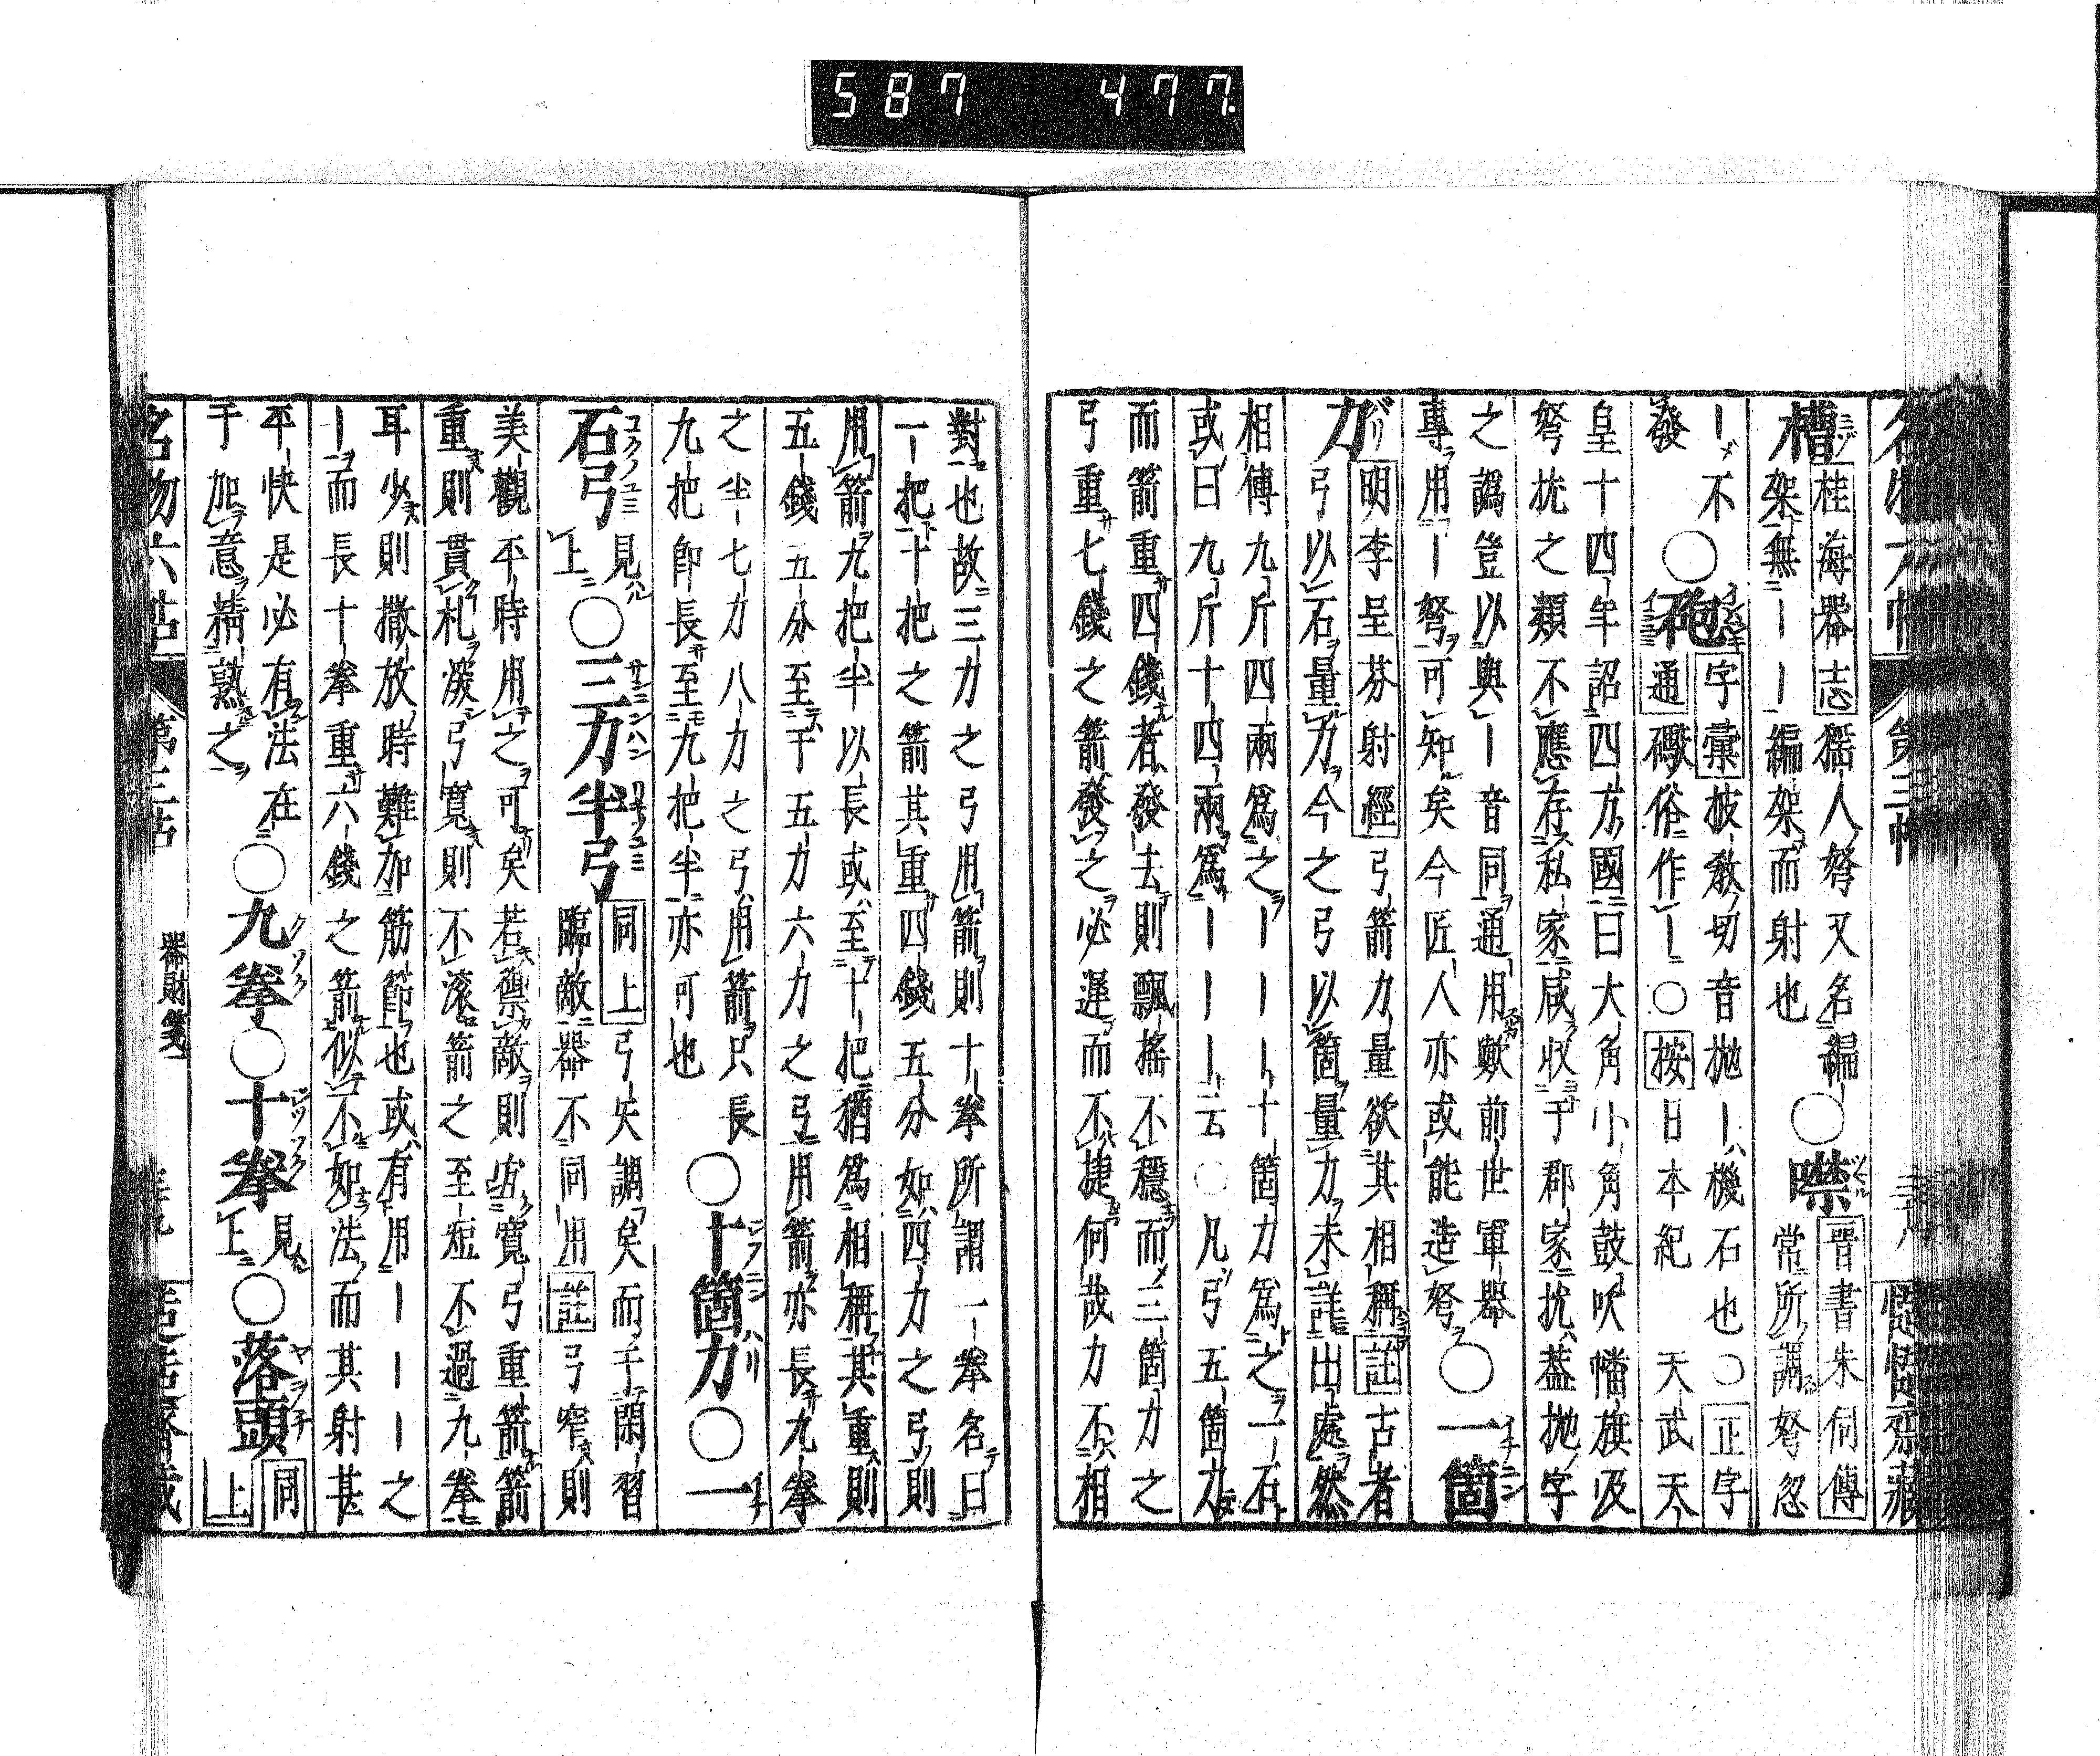 587 477.
名物六帖 第三帖
槽 桂海器志 猺人弩又名編
架無｜｜編架而射也
○噤 晋書朱伺傳
常所調弩忽
｜不 ○砲 字彙 披教切音抛｜機石也○正字
發 通 礮俗作｜○按 日本紀 天武天
皇十四年詔四方國曰大角小角鼓吹幡旗及
弩抛之類不應存私家咸收于郡家抛蓋抛字
之譌豈以與｜音同通用歟前世軍器
專用｜弩可知矣今匠人亦或能造弩 ○一箇
力 明李呈芬射經 弓箭力量欲其相稱 註 古者
弓以石量力今之弓以箇量力未詳出處然
相傳九斤四兩爲之｜｜｜十箇力爲之一石
或曰九斤十四兩爲｜｜｜云○凡弓五箇力
而箭重四錢者發去則飄搖不穩而三箇力之
弓重七錢之箭發之必遲而不捷何哉力不相
對也故三力之弓用箭則十拳所謂一拳名曰
一把十把之箭其重四錢五分如四力之弓則
用箭九把半以長或至十把猶爲相稱其重則
五錢五分至于五力六力之弓用箭亦長九拳
之半七力八力之弓用箭只長
九把即長至九把半亦可也 ○十箇力○一
石弓 見上 ○三力半弓 同上 弓矢調矣而手閑習
臨敵器不同用 註 弓窄則
美觀平時用之可矣若禦敵則宜寬弓重箭箭
重則貫札深弓寬則不滚箭之至短不過九拳
耳少則撒放時難加筋節也或有用｜｜｜之
｜而長十拳重六錢之箭似不如法而其射甚
平快是必有法在
于加意精熟之 ○九拳○十拳 見上 ○落頭 同上
名物六帖 第三帖 器財箋